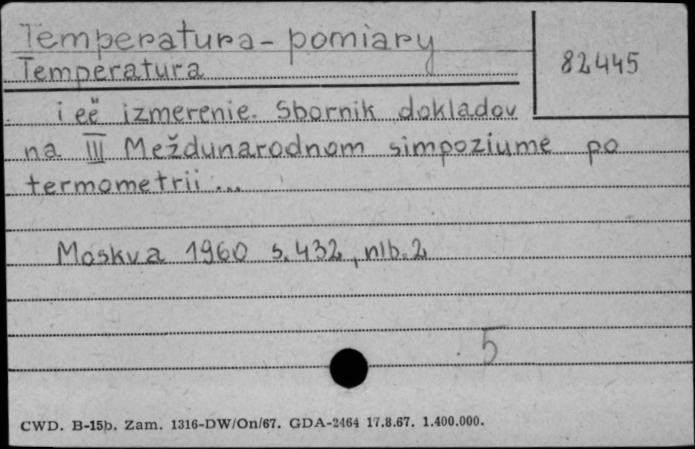 Temperatura - pomiary
82445
Temperatura
i eë izmerenie. Sbornik dokladov
na III Meždunarodnom simpoziume po
termometrii...
Moskva 1960 s. 432, nlb. 2
5
CWD. B-15b. Zam. 1316-DW/On/67. GDA-2464 17.8.67. 1.400.000.